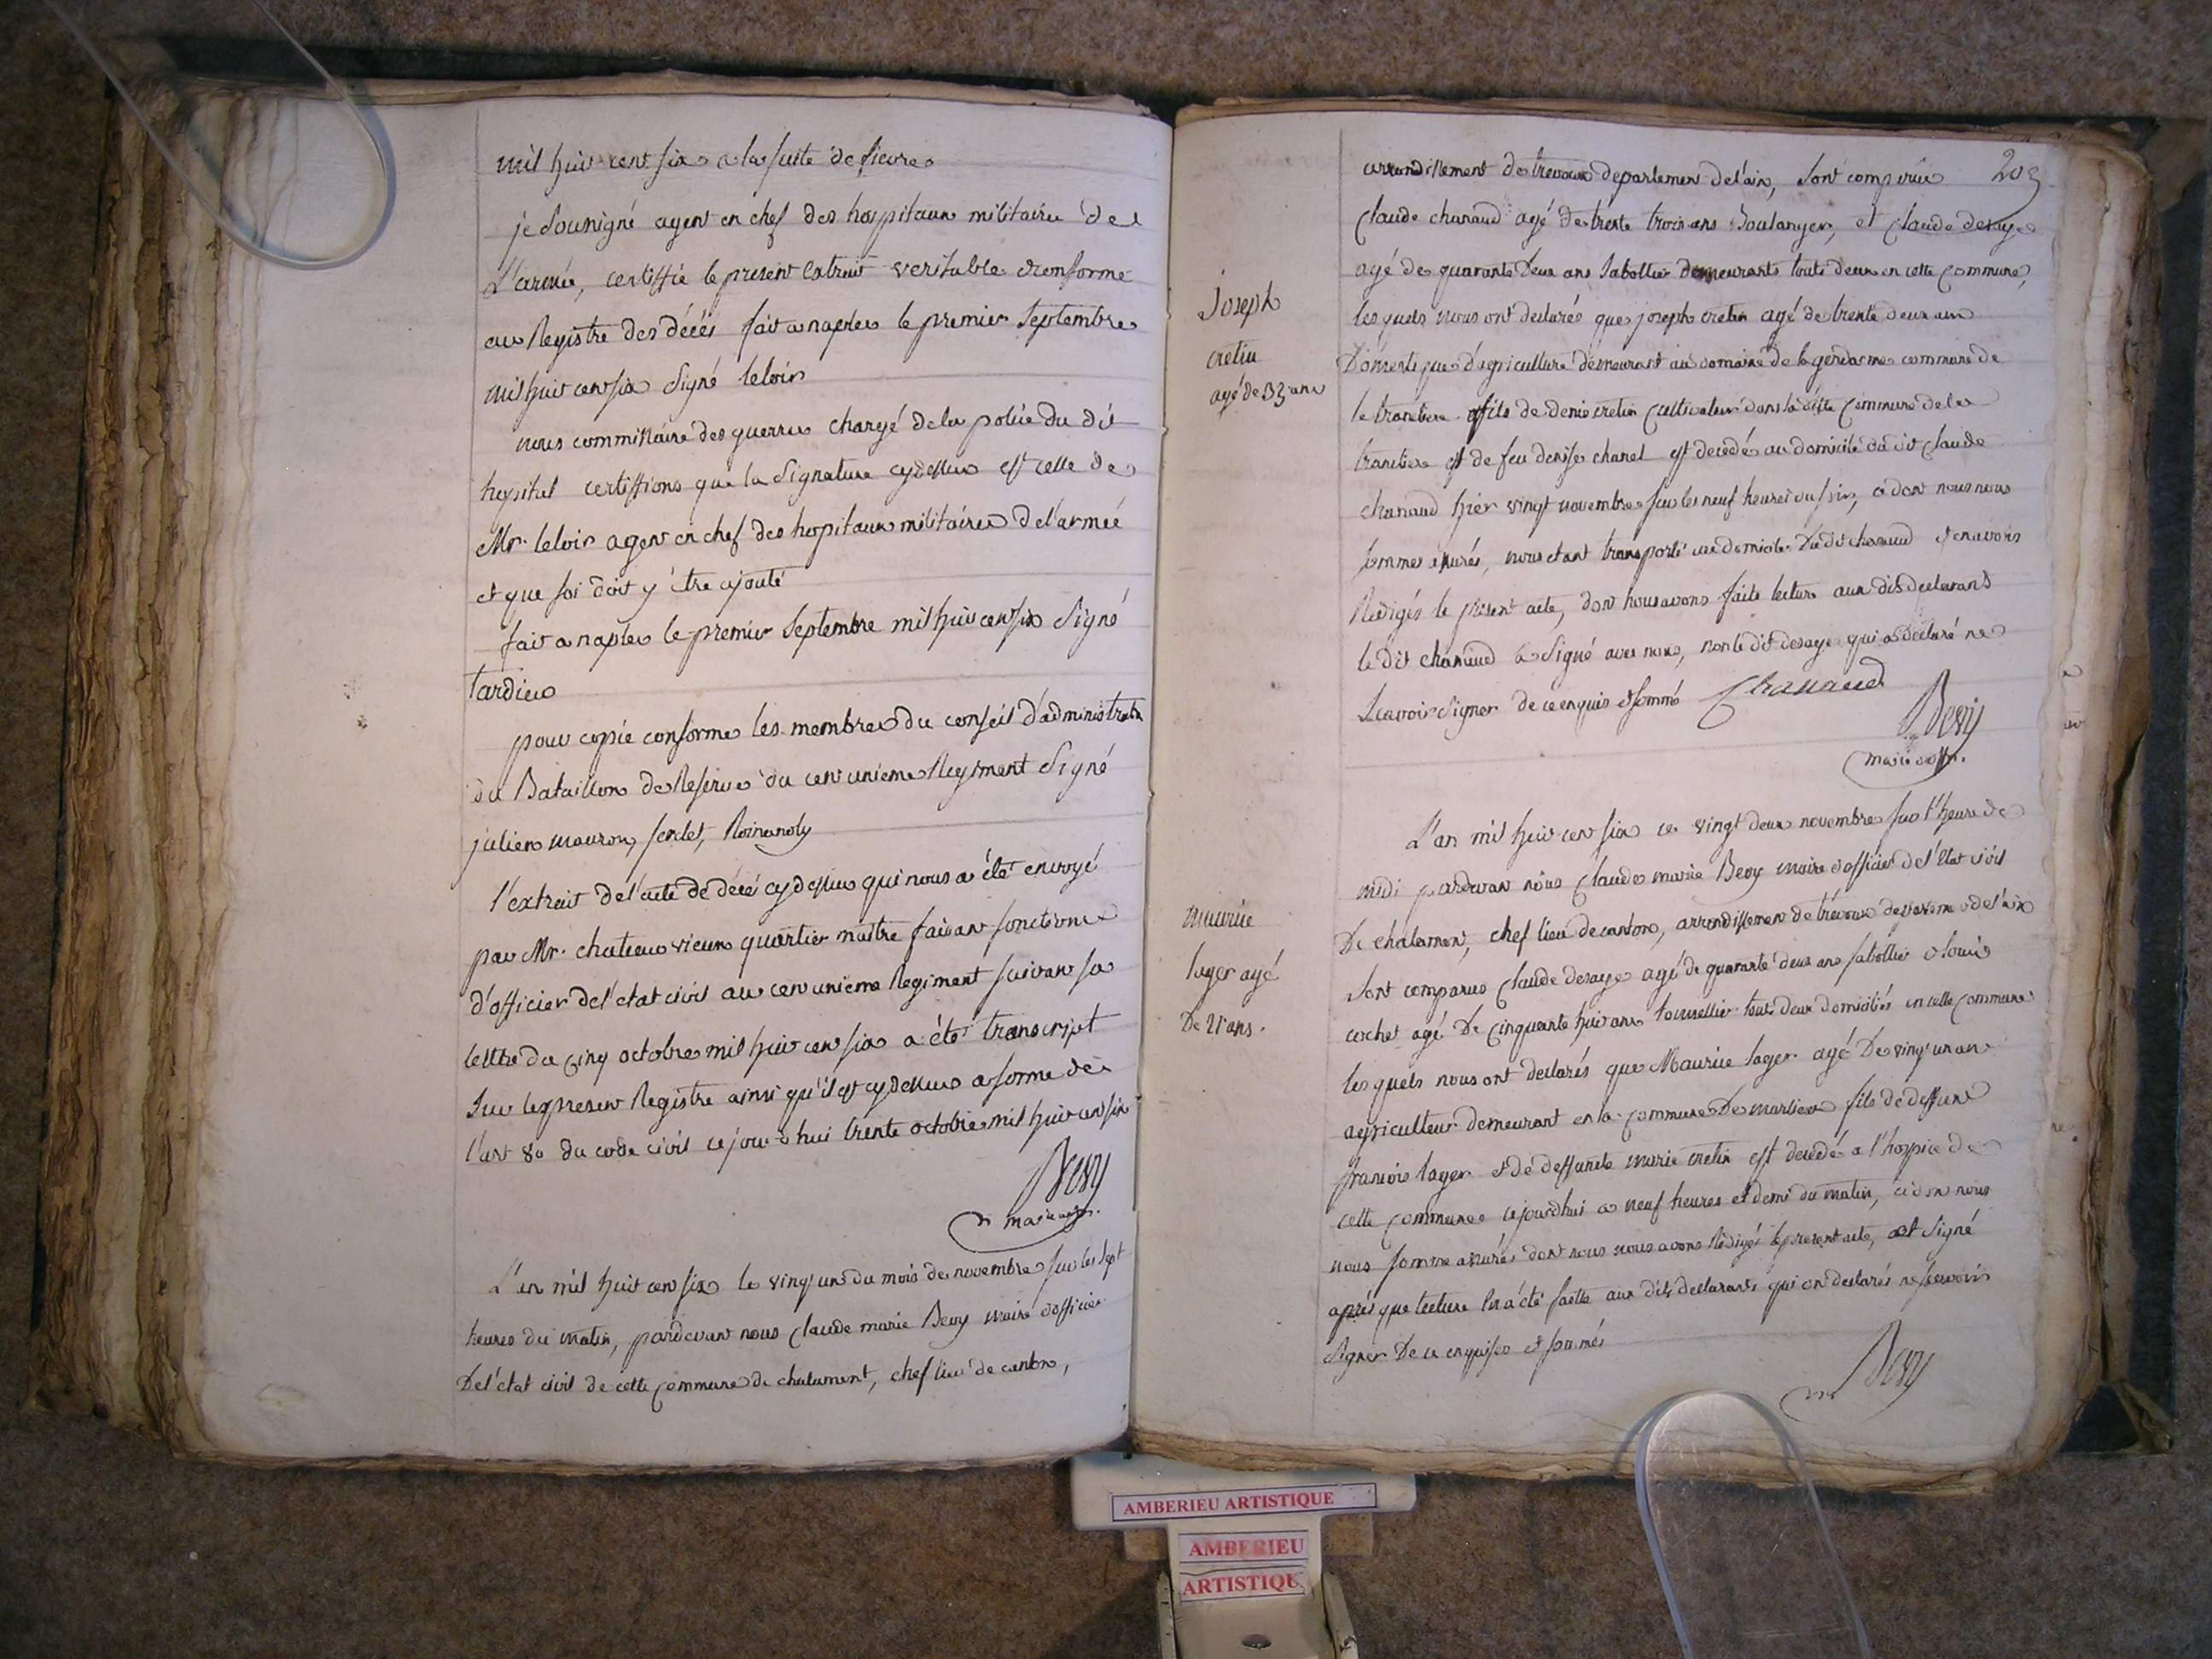 mil huit cent six a la suite de fievre
je sousigné agent en chef des hospitaux militaire de
L'armée, certiffie le present extrait veritable et conforme
au Registre des décés fait a naples le premier septembre
mil huit cent six signé leloir
nous commissaire des guerres chargé de la police du dit
hopital certiffions que la signature cydessus est celle de
Mr. leloir agent en chef des hopitaux militaires de l'armée
et que foi doit y être ajouté
fait a naples le premier septembre mil huit cent six signé
tardieu
pour copie conforme les membres du conseil d'administration
du Bataillon de Reserve du cent unieme Regiment signé
julien mouron,
l'extrait de l'acte de décé cy dessus qui nous a été envoyé
par Mr. chateauvieux quartier maitre faisant fonctions
d'officier de l'etat civil au cent unieme Regiment suivant sa
lettre du cinq octobre mil huit cent six a été transcript
sur le present Registre ainsi qu'il est cy dessus a forme de
l'art 80 du code civil ce jour d'hui trente octobre mil huit cent six
Bevy
maire
L'an mil huit cent six le vingt un du mois de novembre sur les sept
heures du matin, pardevant nous Claude marie Bevy maire et officier
De l'etat civil de cette Commune de chalamont, chef lieu de canton,
203
arrondissement de trevoux departement de l'ain, sont comparus
Claude chanaud agé de trente trois ans Boulanger, et Claude desaye
agé de quarante Deux ans sabottier demeurants touts deux en cette Commune,
les quels nous ont declarés que joseph cretin agé de trente deux ans
Domestique d'agriculture demeurant au domaine de la gendarme commune de
la trancliere fils de denis cretin Cultivateur dans la ditte Commune de la
tranclière et de feu denise chanel est decedé au domicile du dit Claude
chanaud hier vingt novembre sur les neuf heures du soir, ce dont nous nous
sommes assurés, nous etant transporté au domicile Du dit chanaud et en avons
Redigés le présent acte, dont nous avons faits lecture aux dits declarants
le dit chanaud a signé avec nous, non le dit desaye qui a déclaré ne
scavoir signer de ce enquis et sommé Chanaud
Bevy
maire
Joseph
cretin
agé de 32 ans
L'an mil huit cent six ce vingt deux novembre sur l'heure de
midi pardevant nous Claude marie Bevy maire et officier de l'Etat civil
De chalamont, chef lieu de canton, arrondissement de trévoux departement de l'ain
sont comparus Claude desaye agé de quarante deux ans sabottier et louis
cochet agé De Cinquante huit ans tonnellier touts deux domiciliés en cette Commune
les quels nous ont declarés que Maurice lager agé De vingt un ans
agriculteur demeurant en la Commune De marlieux fils de deffunt
françois lager et de deffunte marie cretin est decedé a l'hospice de
cette Commune cejourd'hui a neuf heures et demi du matin, ce dont nous
nous somme assurés dont nous nous avons Rédigés le present acte, et signé
après que lecture en a été faitte aux dits declarants qui ont declarés ne scavoir
signer De ce enquises et sommés
Bevy
maurice
lager agé
De 21 ans.
AMBERIEU ARTISTIQUE
AMBERIEU
ARTISTIQUE